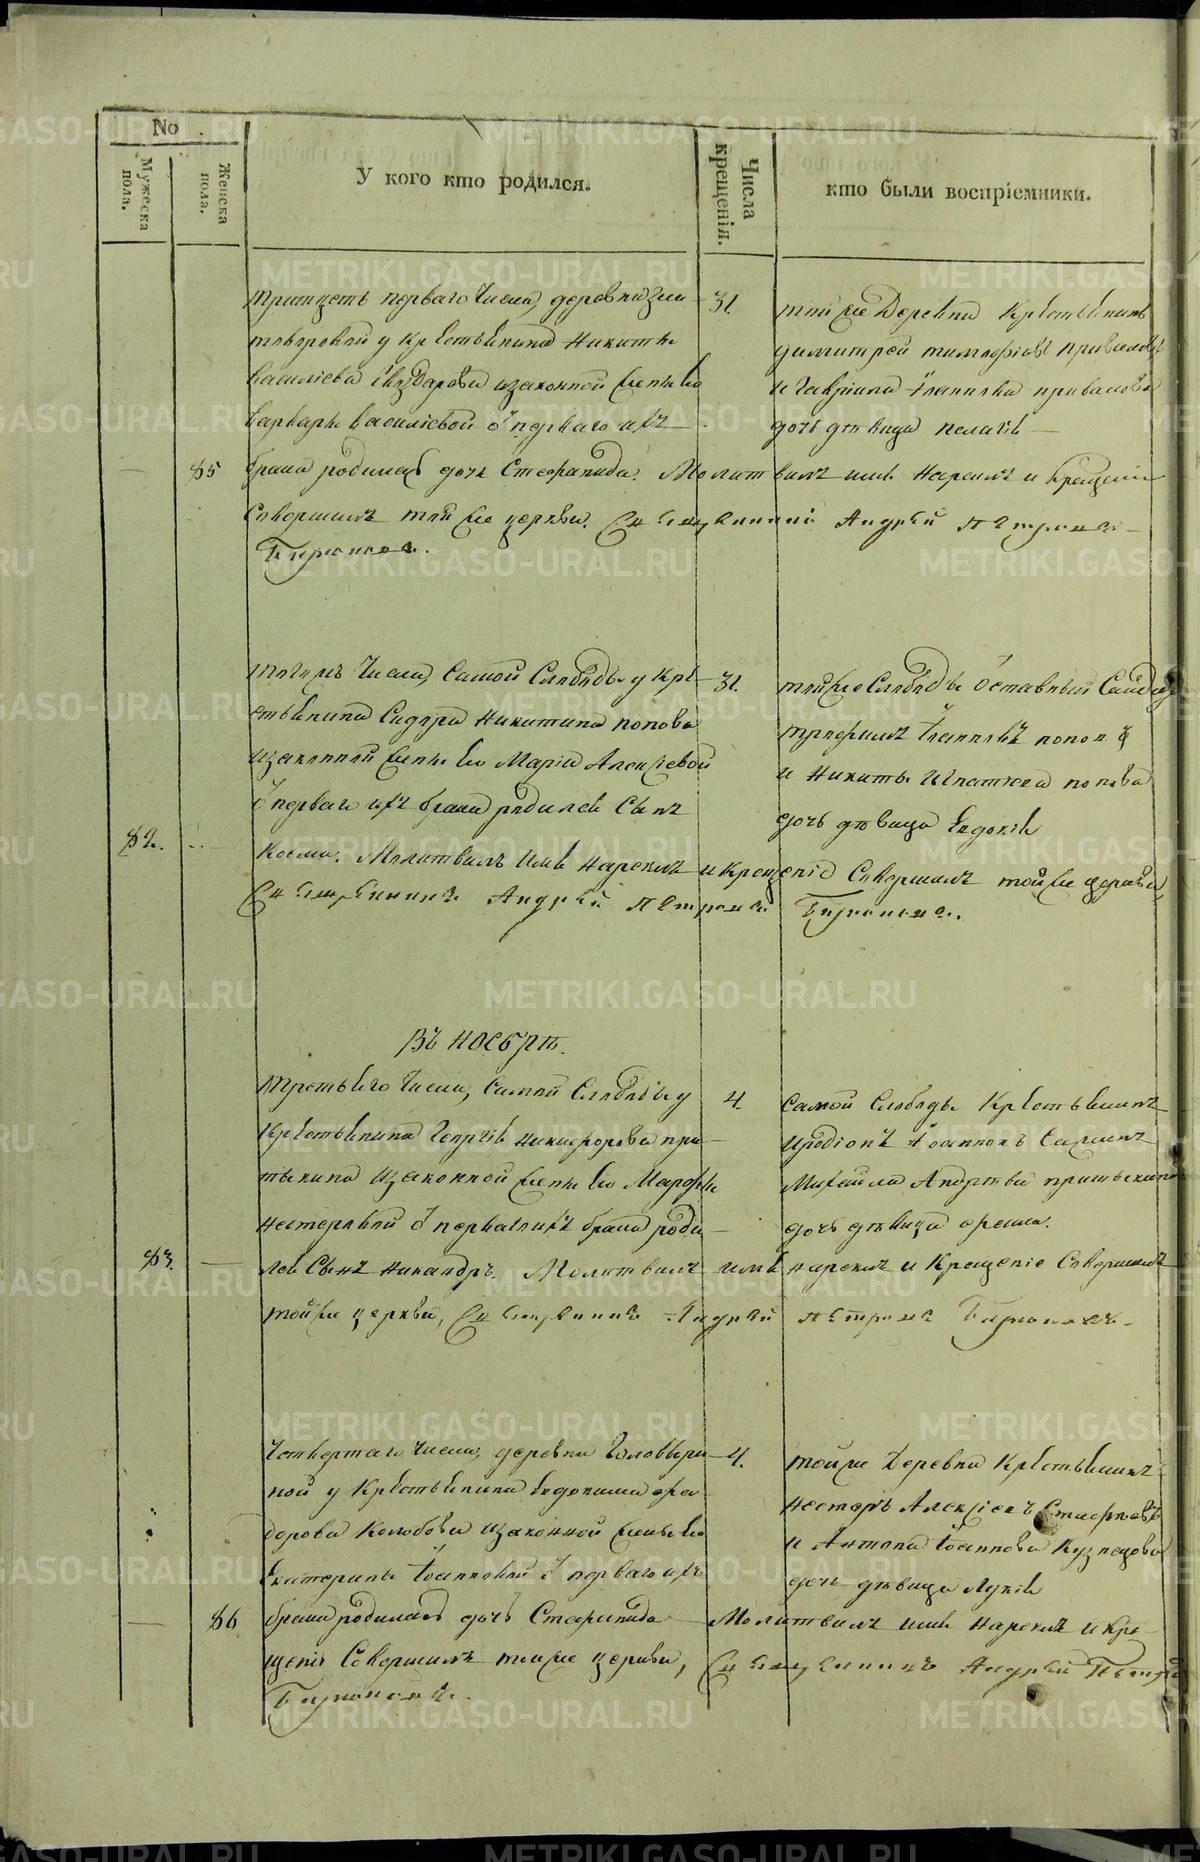 No
Мужеска пола.
Женска пола.
У кого кто родился.
Числа крещенія.
кто были воспріемники.
тритцеть перваго числа, деревни
у крестьянина Никиты
Василіева изаконной жены ево
Варвары Василіевой ѿ перваго ихъ
85 брака родилась дочь Стефанида. Молитвилъ имя нарекалъ и крещеніе
совершилъ той же церкви Священникъ Андрей Петровъ
Бирюковъ.
31.
той же деревни крестьянинъ
Димитрей Тимофіевъ Приваловъ
и Гавріила Іоаннова Привалова
дочь дѣвица Пелагія
тогожъ числа, самой слободы у кре-
стьянина Сидора Никитина Попова
изаконной жены ево Маріи Алексіевой
ѿ перваго ихъ брака родился сынъ
82. Косма. Молитвилъ имя нарекалъ и крещеніе совершилъ той же церкви
Священникъ Андрей Петровъ Бирюковъ.
31.
той же слободы оставный
Трофимъ Іоанновъ Попов
и Никиты Игнатьева Попова
дочь дѣвица Евдокія
Въ ноебрѣ.
третьяго числа, самой слободы у
крестьянина Георгія Никифорова При-
тыкина изаконной жены ево Марфы
Нестеровой ѿ перваго ихъ брака роди-
83. лся сынъ Никандръ. Молитвилъ имя нарекалъ и крещеніе совершилъ
той же церкви, Священникъ Андрей Петровъ Бирюковъ.
4.
самой слободы крестьянинъ
Иродіонъ Іоанновъ
Михайла Андреева Притыкина
дочь дѣвица
четвертаго числа, деревни Головыри-
ной у крестьянина Евдокима Фео-
дорова Колобова изаконной жены ево
Екатерины Іоанновой ѿ перваго ихъ
86 брака родилась дочь Стефанида Молитвилъ имя нарекалъ и кре-
щеніе совершилъ той же церкви, Священникъ Андрей Петров
Бирюковъ.
4.
той же деревни крестьянинъ
Нестеръ Алексіевъ
и Антона Іоаннова Кузнецова
дочь дѣвица Лукія
METRIKI.GASO-URAL.RU